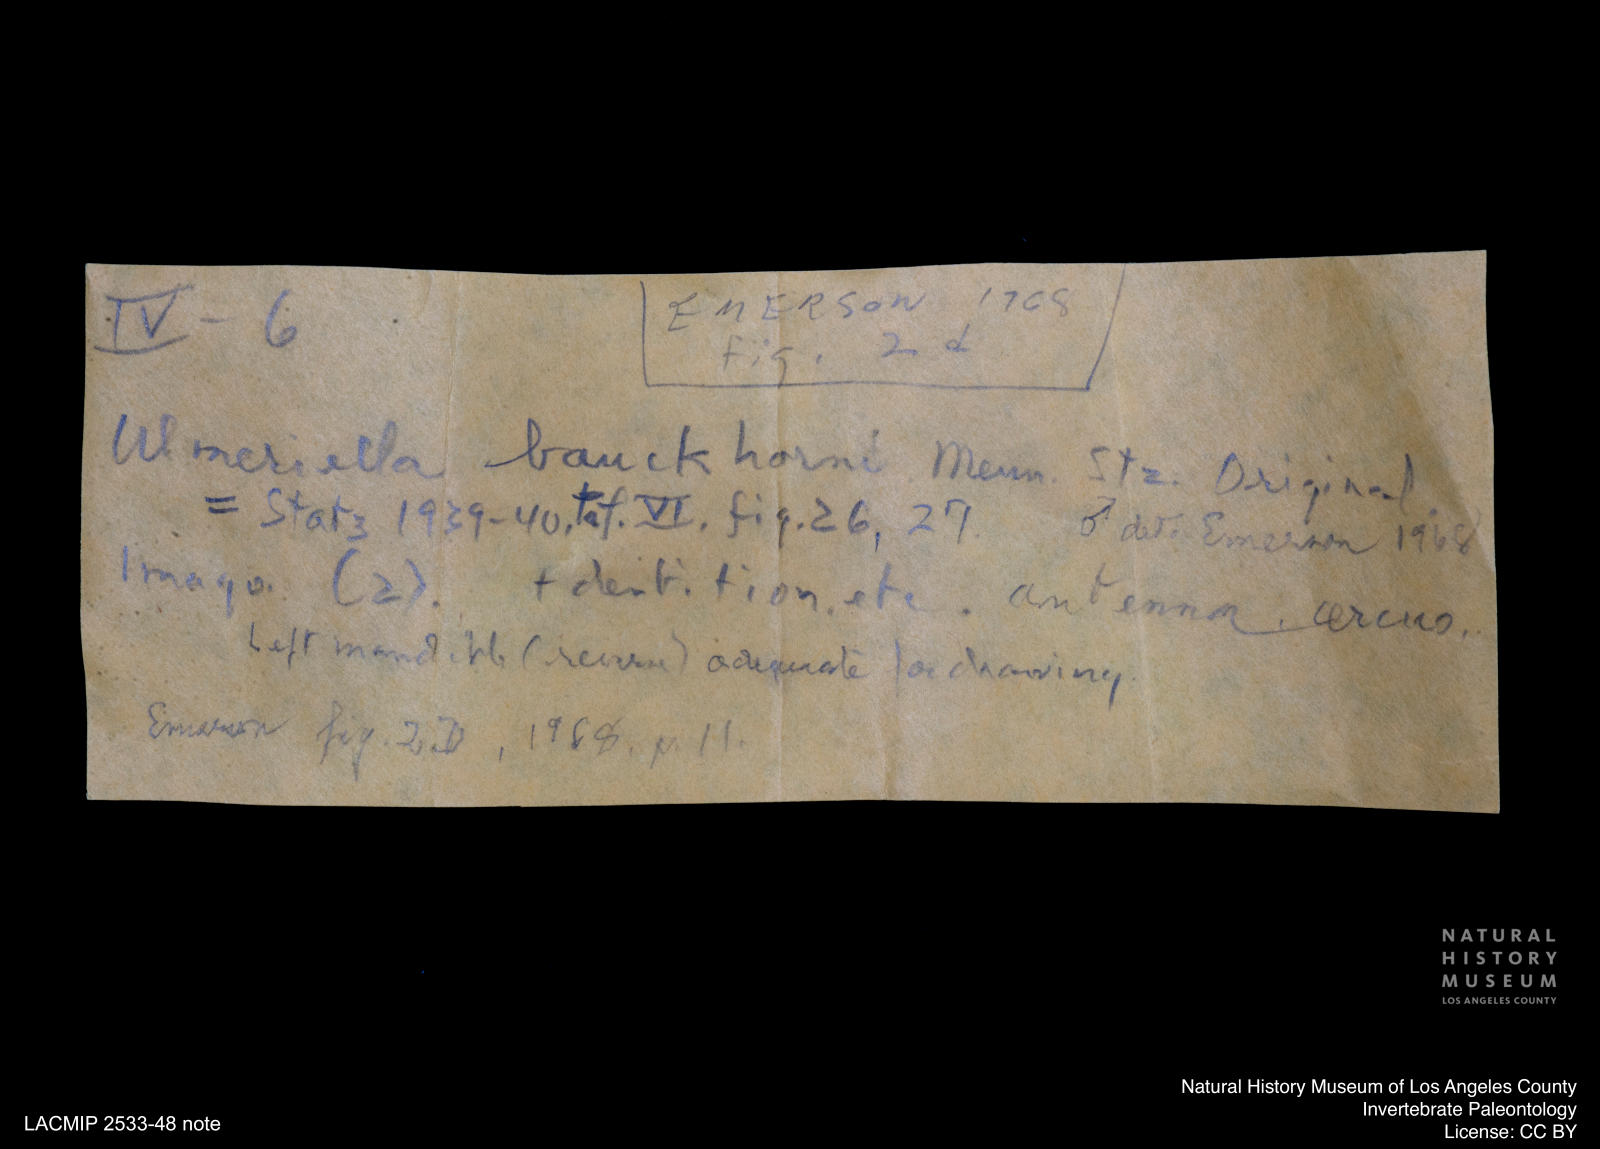 IV - 6
EMERSON 1968
fig. 2 d
Ulmeriella bauckhorni Meun. Stz. Original
= Statz 1939-40, taf. VI. fig. 26, 27.
♂ det. Emerson 1968
Imago. (2). + dentition, etc. antenna, cercus.
Left mandible (reverse) adequate for drawing.
Emerson fig. 2D, 1968. p. 11.
NATURAL
HISTORY
MUSEUM
LOS ANGELES COUNTY
Natural History Museum of Los Angeles County
Invertebrate Paleontology
License: CC BY
LACMIP 2533-48 note